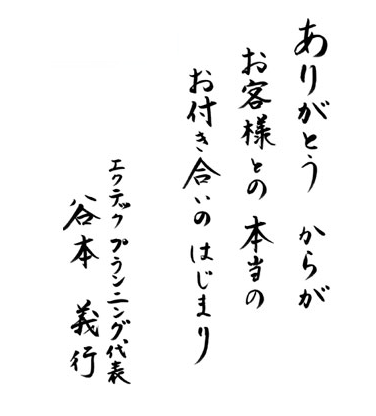 ありがとう からが
お客様との 本当の
お付き合いの はじまり
エクテック プランニング代表
谷本 義行